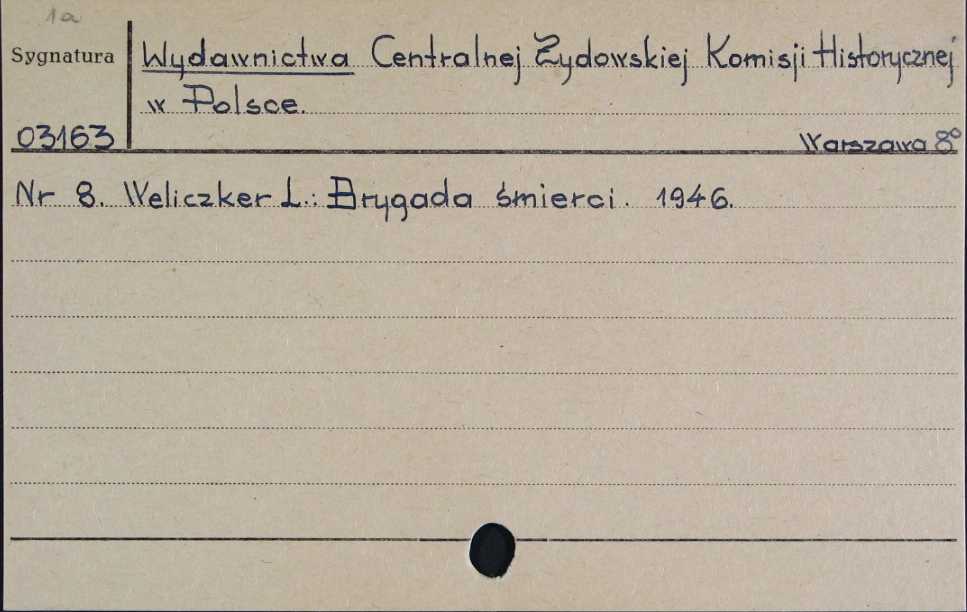 1a
Sygnatura
Wydawnictwa Centralnej Żydowskiej Komisji Historycznej
w Polsce.
03163
Warszawa 8°
Nr 8. Weliczker L.: Brygada śmierci. 1946.